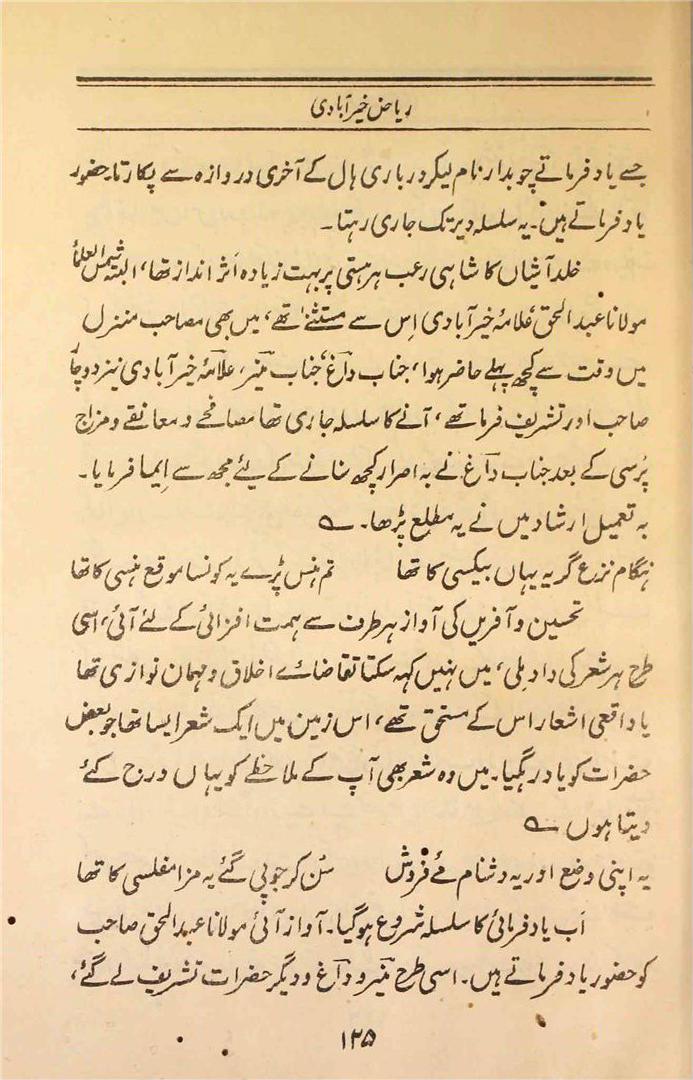 ریاض خیرآبادی
جسے یاد فرماتے چوبدار نام لیکر درباری ہال کے آخری دروازہ سے پکارتا۔ حضور
یاد فرماتے ہیں۔ یہ سلسلہ دیر تک جاری رہتا۔
خلد آشیاں کا شاہی رعب ہر ہستی پر بہت زیادہ اثر انداز تھا، البتہ شمس العلماء
مولانا عبدالحق علامۂ خیرآبادی اِس سے مستثنےٰ تھے، میں بھی مصاحب منزل
میں وقت سے کچھ پہلے حاضر ہوا، جناب داغ، جناب منیر، علامۂ خیرآبادی نیز دو چار
صاحب اور تشریف فرما تھے، آنے کا سلسلہ جاری تھا مصافحے و معانقے و مزاج
پُرسی کے بعد جناب داغ نے بہ اصرار کچھ سنانے کے لیئے مجھ سے ایما فرمایا۔
بہ تعمیل ارشاد میں نے یہ مطلع پڑھا۔ ؎
ہنگام نزع گریہ یہاں بیکسی کا تھا تم ہنس پڑے یہ کونسا موقع ہنسی کا تھا
تحسین و آفریں کی آواز ہر طرف سے ہمت افزائی کے لئے آئی، اسی
طرح ہر شعر کی داد ملی، میں نہیں کہہ سکتا تقاضائے اخلاق و مہمان نوازی تھا
یا واقعی اشعار اس کے مستحق تھے، اس زمین میں ایک شعر ایسا تھا جو بعض
حضرات کو یاد رہ گیا۔ میں وہ شعر بھی آپ کے ملاحظے کو یہاں درج کئے
دیتا ہوں ؎
یہ اپنی وضع اور یہ دشنام مے فروش سُن کر جو پی گئے یہ مزا مفلسی کا تھا
اَب یاد فرمائی کا سلسلہ شروع ہوگیا۔ آواز آئی مولانا عبدالحق صاحب
کو حضور یاد فرماتے ہیں۔ اسی طرح منیر و داغ و دیگر حضرات تشریف لے گئے،
۱۲۵